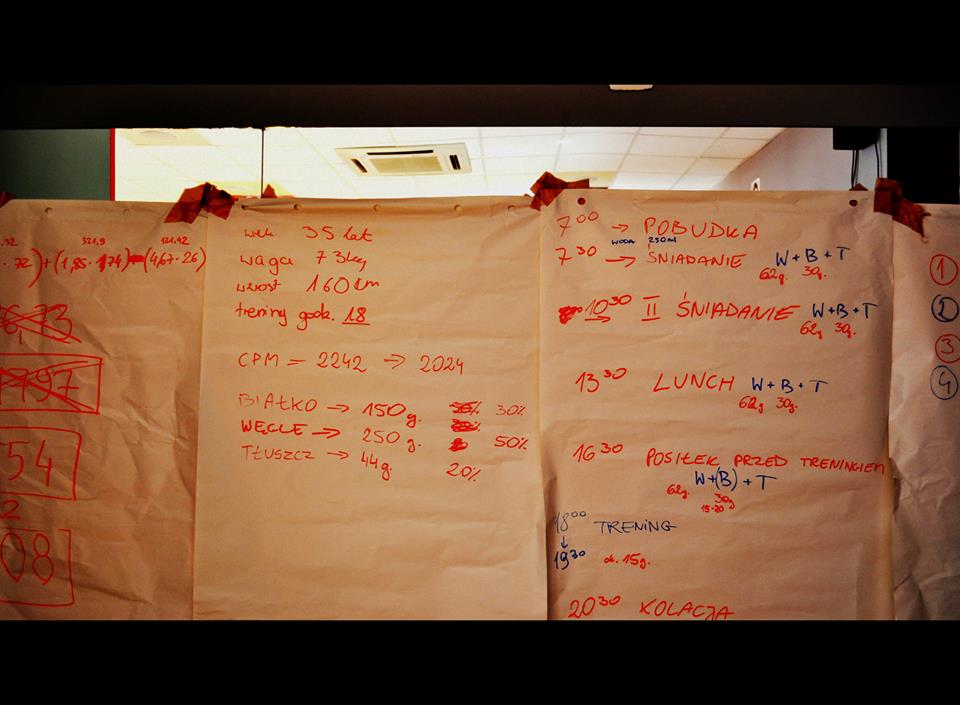 321,9 121,42
72) + (1,85 · 174) - (4,67 · 26)
54
2
08
wiek 35 lat
waga 73kg
wzrost 160cm
trening godz. 18
CPM = 2242 → 2024
BIAŁKO → 150g. 30%
WĘGLE → 250g. 50%
TŁUSZCZ → 44g. 20%
7⁰⁰ → POBUDKA
WODA 250ml
7³⁰ → ŚNIADANIE W+B+T
62g. 30g.
10³⁰ II ŚNIADANIE W+B+T
62g. 30g.
13³⁰ LUNCH W+B+T
62g 30g.
16³⁰ POSIŁEK PRZED TRENINGIEM
W+(B)+T
62g. 30g
15-20g
18⁰⁰ TRENING
↓
19³⁰ ok. 15g.
20³⁰ KOLACJA
1
2
3
4